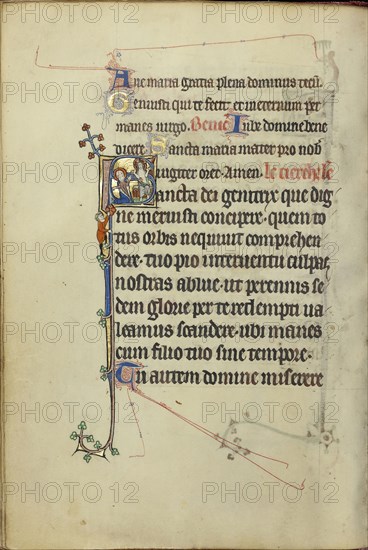 Ave maria gratia plena dominus tecū.
Genuisti qui te fecit et in eternum per
manes uirgo. Benic Iube domine bene
dicere. Sancta maria mater pro nob
iugiter oret. Amen.
Sancta dei genitryx que dig
ne meruisti concipere. quem to
tus orbis nequiuit comprehen
dere. tuo pio interuentu culpas
nostras ablue. ut perennis se
dem glorie per te redempti ua
leamus scandere. ubi manes
cum filio tuo sine tempore.
Tu autem domine miserere